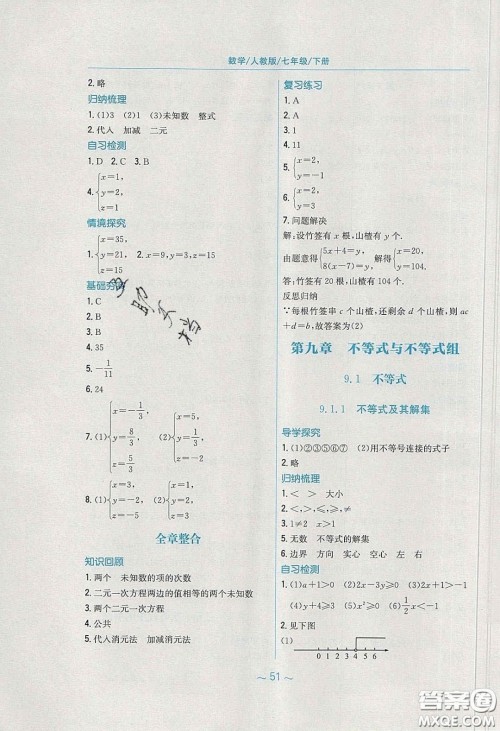 数学/人教版/七年级/下册
2. 略
归纳梳理
1. (1)3 (2)1 (3)未知数 整式
2. 代入 加减 二元
自习检测
1. D 2. C 3. B
4. {x=1, y=2, z=1
情境探究
1. {x=35, y=21, z=15 2. x=9,y=3,z=15
基础夯
1. C
2. B
3. B
4. 35
5. -1/11
6. 24
7. (1){x=-1/3, y=8/3, z=5/3 (2){x=3, y=4, z=5
8. (1){x=5, y=-2, z=3 (2){x=3, y=2, z=-5
全章整合
知识回顾
1. 两个 未知数的项的次数
2. 二元一次方程两边的值相等的两个未知数
3. 两个二元一次方程
4. 公共
5. 代入消元法 加减消元法
复习练习
1. A
2. A
3. 1
4. 11
5. {x=2, y=1
6. {x=2, y=3, z=-1
7. 问题解决
解:设竹签有 x 根,山楂有 y 个.
由题意得{5x+4=y, 8(x-7)=y, 解得{x=20, y=104.
答:竹签有 20 根,山楂有 104 个.
反思归纳
∵每根竹签串 c 个山楂,还剩余 d 个山楂,则 ac
+d=b,故答案为(2)
第九章 不等式与不等式组
9.1 不等式
9.1.1 不等式及其解集
导学探究
1. (1)①②③⑤⑥⑦ (2)用不等号连接的式子
2. 略
归纳梳理
1. < > 大小
2. <,>,≤,≥,≠
3. 1≠2 x>1
5. 无数 不等式的解集
6. 边界 方向 实心 空心 右 左
自习检测
1. (1)a+1>0 (2)2x-3≥0 (3)x-1≤0
(4)6y≥4 (5)a+b≥0 (6)1/2x<-1
2. 见下图
(1)
0 1 2 3 4 5 6
～ 51 ～
答案圈
MXQE.COM